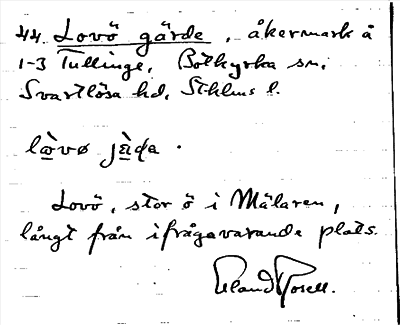 44. Lovö gärde, åkermark å
1-3 Tullinge, Botkyrka sn.
Svartlösa hd, Sthlms l.
lòvø jà̤ɖa.
Lovö, stor ö i Mälaren,
långt från ifrågavarande plats.
Erland Rosell.